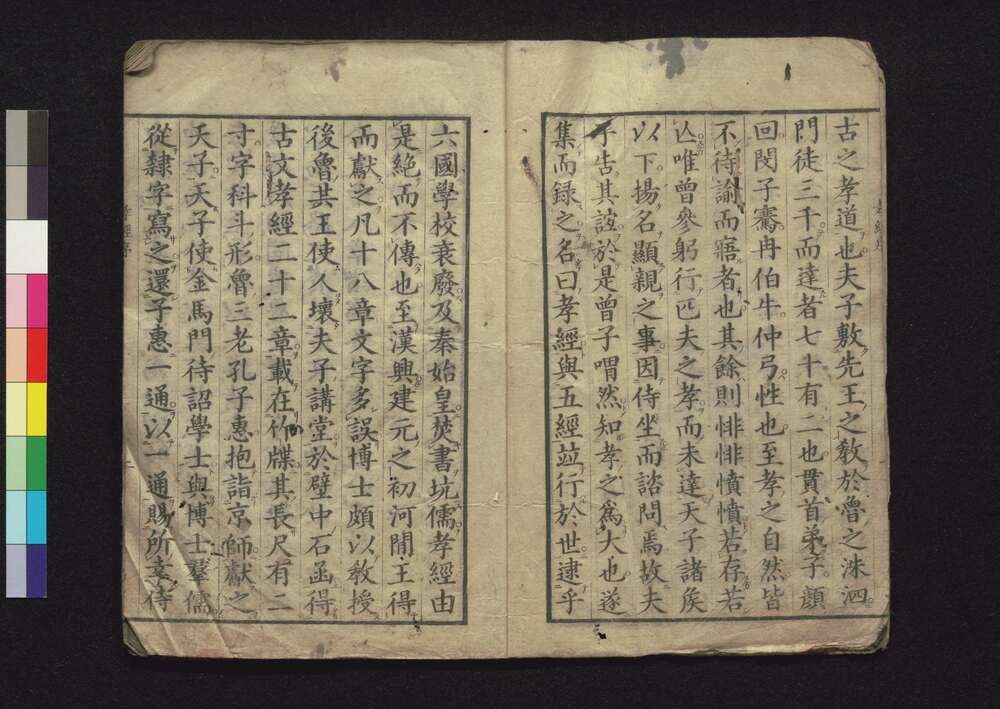 古之孝道也夫子敷先王之敎於魯之洙泗
門徒三千而達者七十有二也貫首弟子顔
回閔子騫冉伯牛仲弓性也至孝之自然皆
不待諭而寤者也其餘則悱悱憤憤若存若
亾唯曾參躬行匹夫之孝而未達天子諸矦
以下揚名顯親之事因侍坐而諮問焉故夫
子告其誼於是曾子喟然知孝之爲大也遂
集而録之名曰孝經與五經竝行於世逮乎
六國學校衰廢及秦始皇焚書坑儒孝經由
是絶而不傳也至漢興建元之初河間王得
而獻之凡十八章文字多誤博士頗以敎授
後魯共王使人壞夫子講堂於壁中石函得
古文孝經二十二章載在竹牒其長尺有二
寸字科斗形魯三老孔子惠抱詣京師獻之
天子天子使金馬門待詔學士與博士羣儒
從隷字寫之還子惠一通以一通賜所幸侍